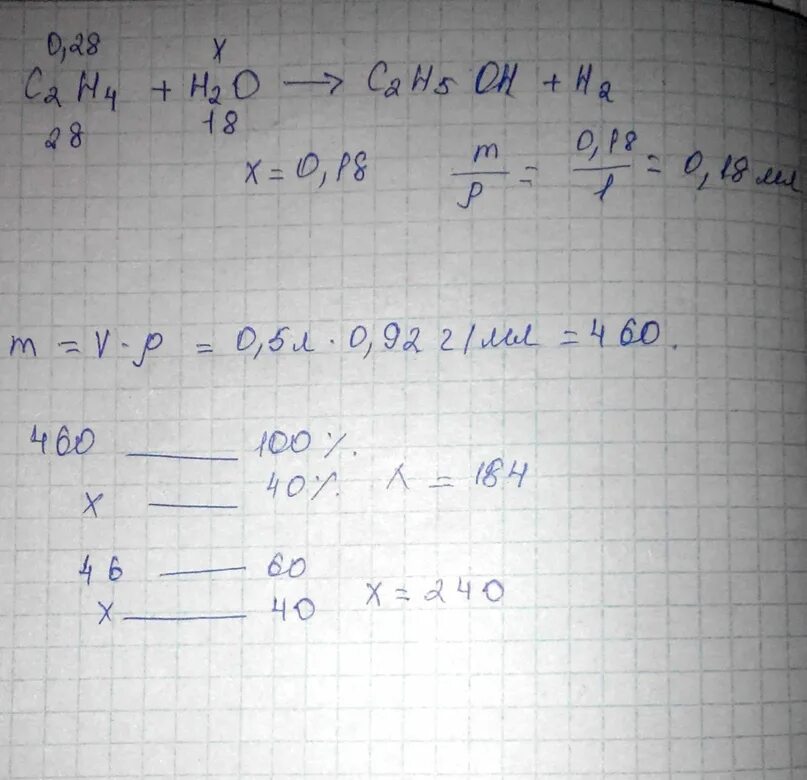 0,28 x
C₂H₄ + H₂O → C₂H₅OH + H₂
28 18
x = 0,18 m/ρ = 0,18/1 = 0,18 мл
m = V · ρ = 0,5л · 0,92 г/мл = 460.
460 —— 100%.
x —— 40%. x = 184
46 —— 60
x —— 40 x = 240